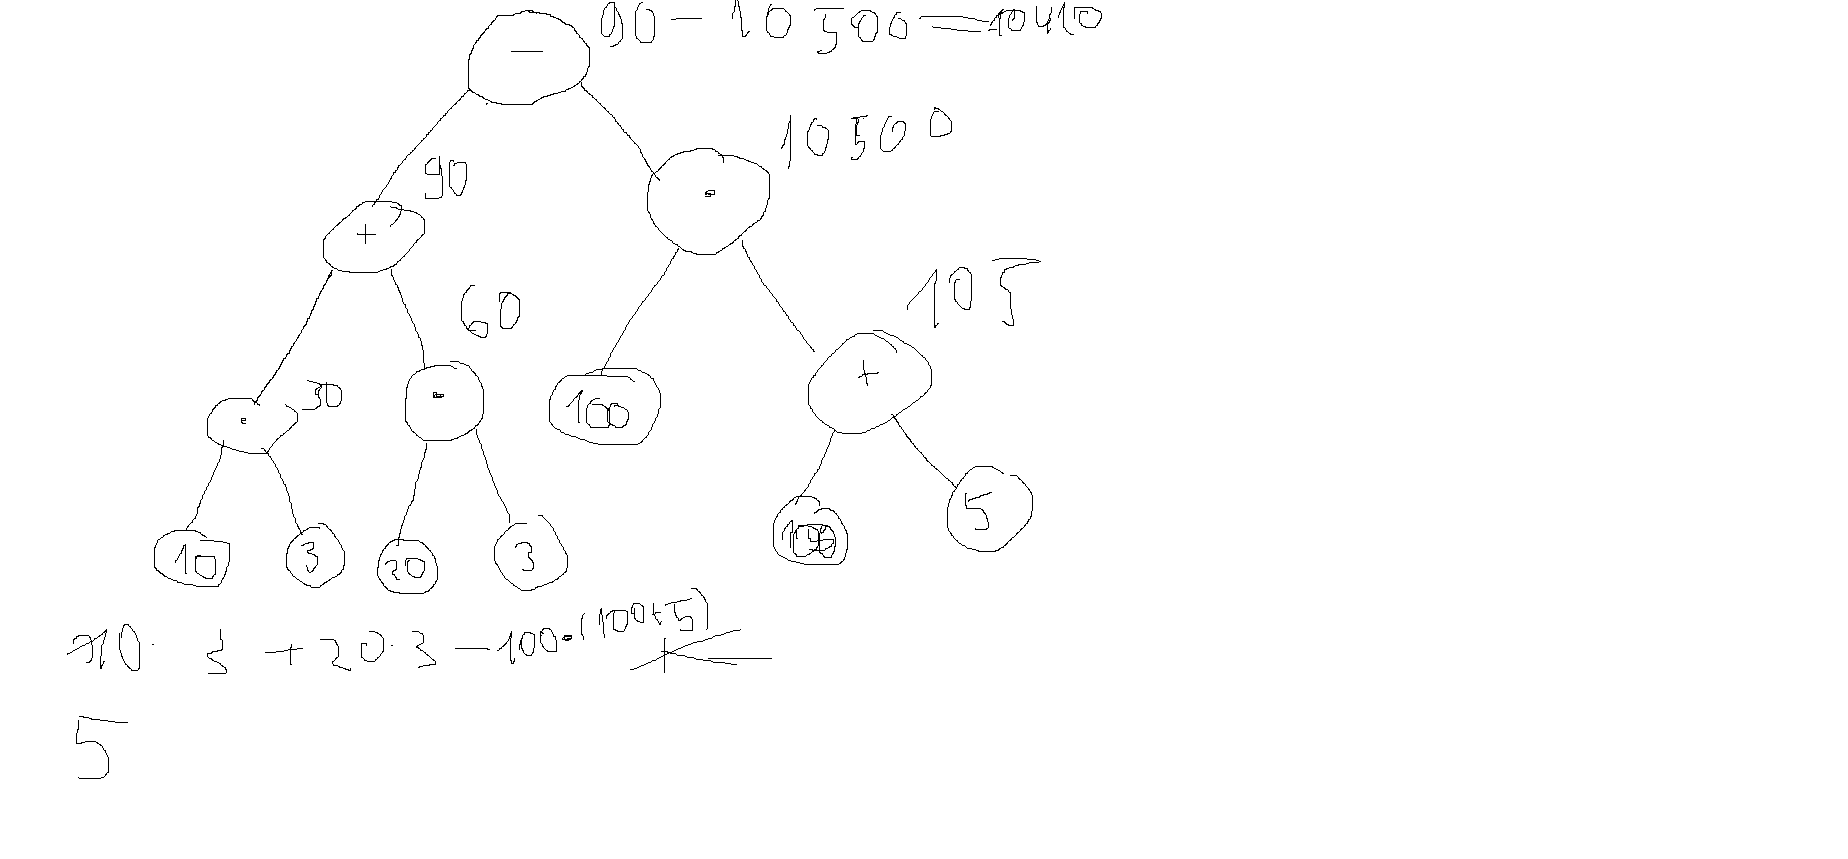 90 - 10500 = -10410
-
10500
90
·
+
105
60
+
30
·
·
100
5
10
3
20
3
10· 3 + 20·3 - 100·(100+5)
5